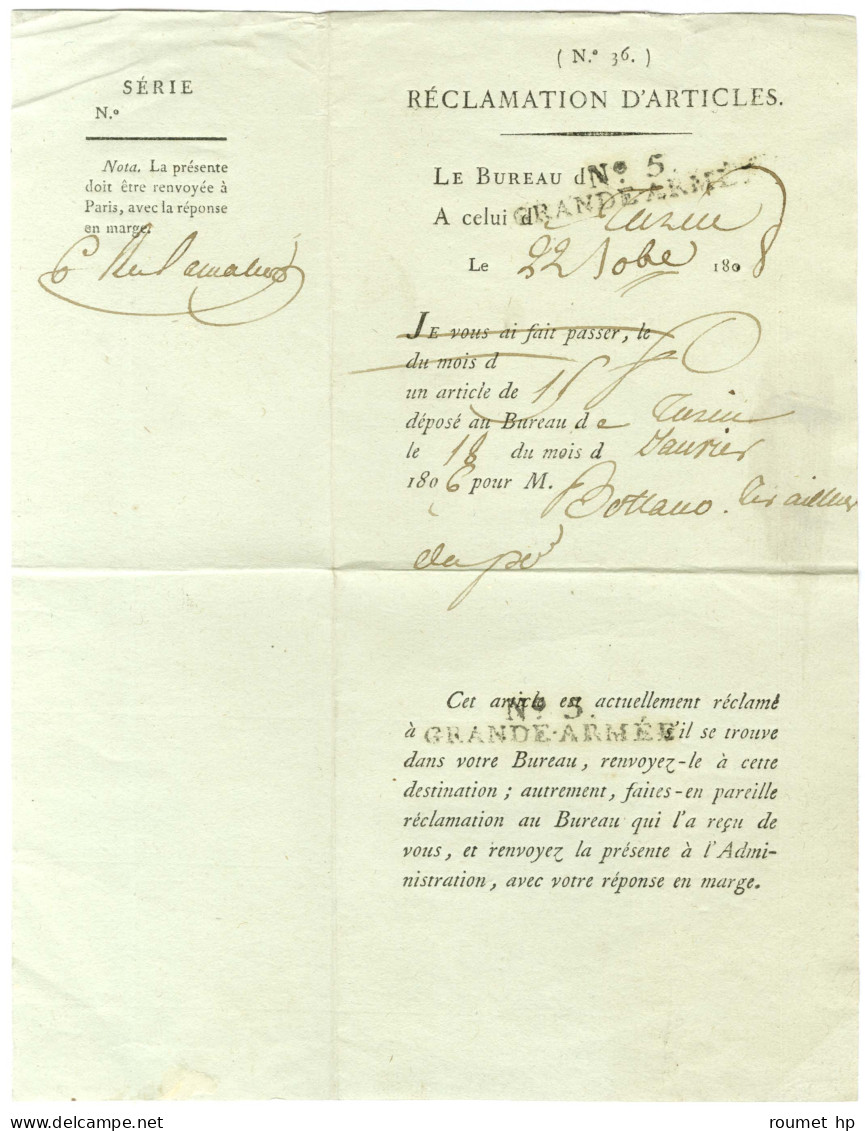 SÉRIE
N.º
Nota. La présente
doit être renvoyée à
Paris, avec la réponse
en marge.
( N.º 36. )
RÉCLAMATION D'ARTICLES.
Nº 5.
GRANDE-ARMÉE
LE BUREAU d
A celui de Turin
Le 22 Xobre 1808
JE vous ai fait passer, le
du mois d
un article de 15
déposé au Bureau de Turin
le 18 du mois d Janvier
1806 pour M. Bottano. tirailleur
du po
Nº 5.
GRANDE-ARMÉE
Cet article est actuellement réclamé
à s'il se trouve
dans votre Bureau, renvoyez-le à cette
destination ; autrement, faites-en pareille
réclamation au Bureau qui l'a reçu de
vous, et renvoyez la présente à l'Admi-
nistration, avec votre réponse en marge.
roumet hp